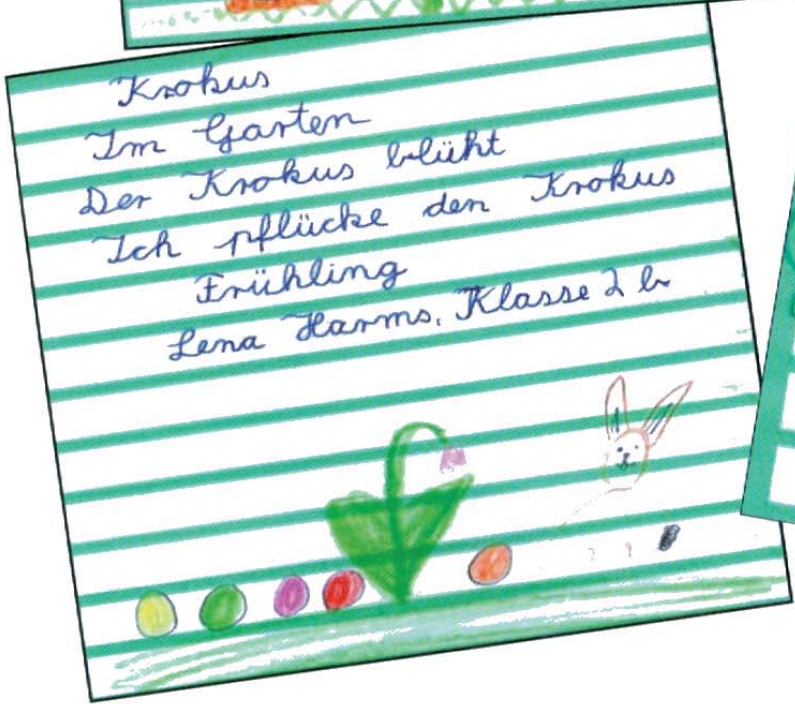 Krokus
Im Garten
Der Krokus blüht
Ich pflücke den Krokus
Frühling
Lena Harms, Klasse 2 b